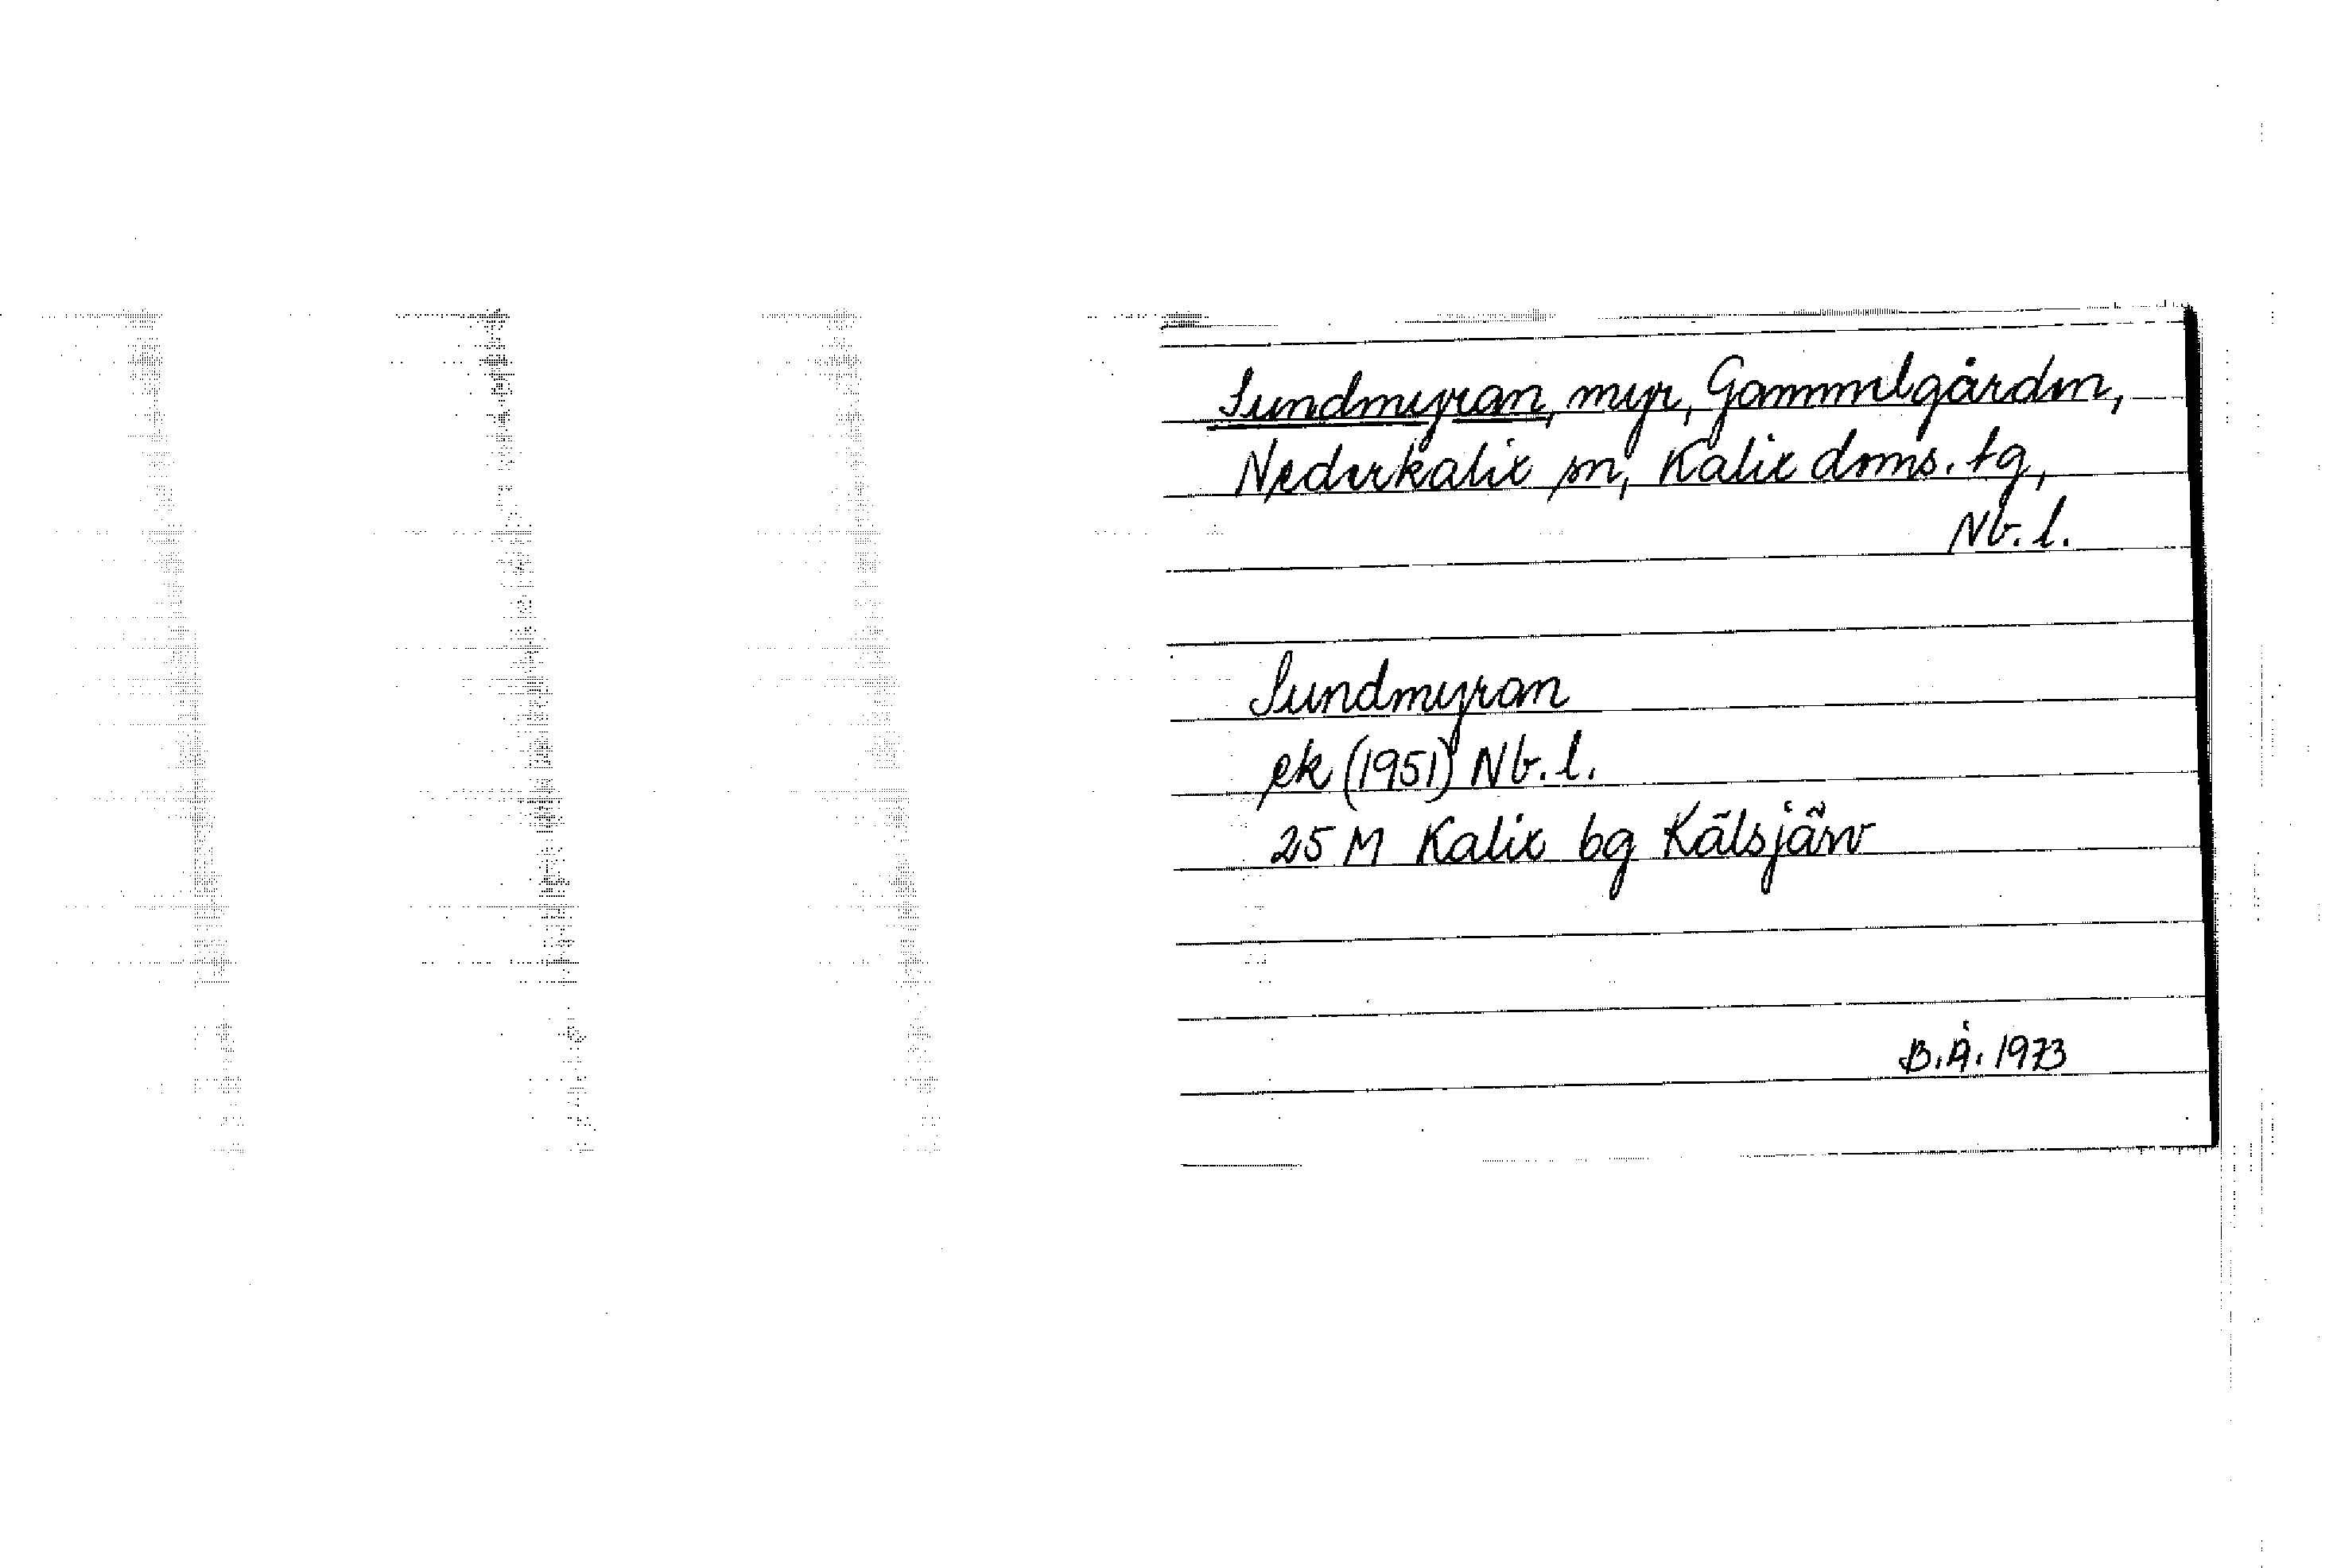 Sundmyran, myr, Gammelgården,
Nederkalix sn, Kalix doms. tg,
Nb. l.
Sundmyran
ek (1951) Nb. l.
25 M Kalix bg Kälsjärv
B.Å. 1973